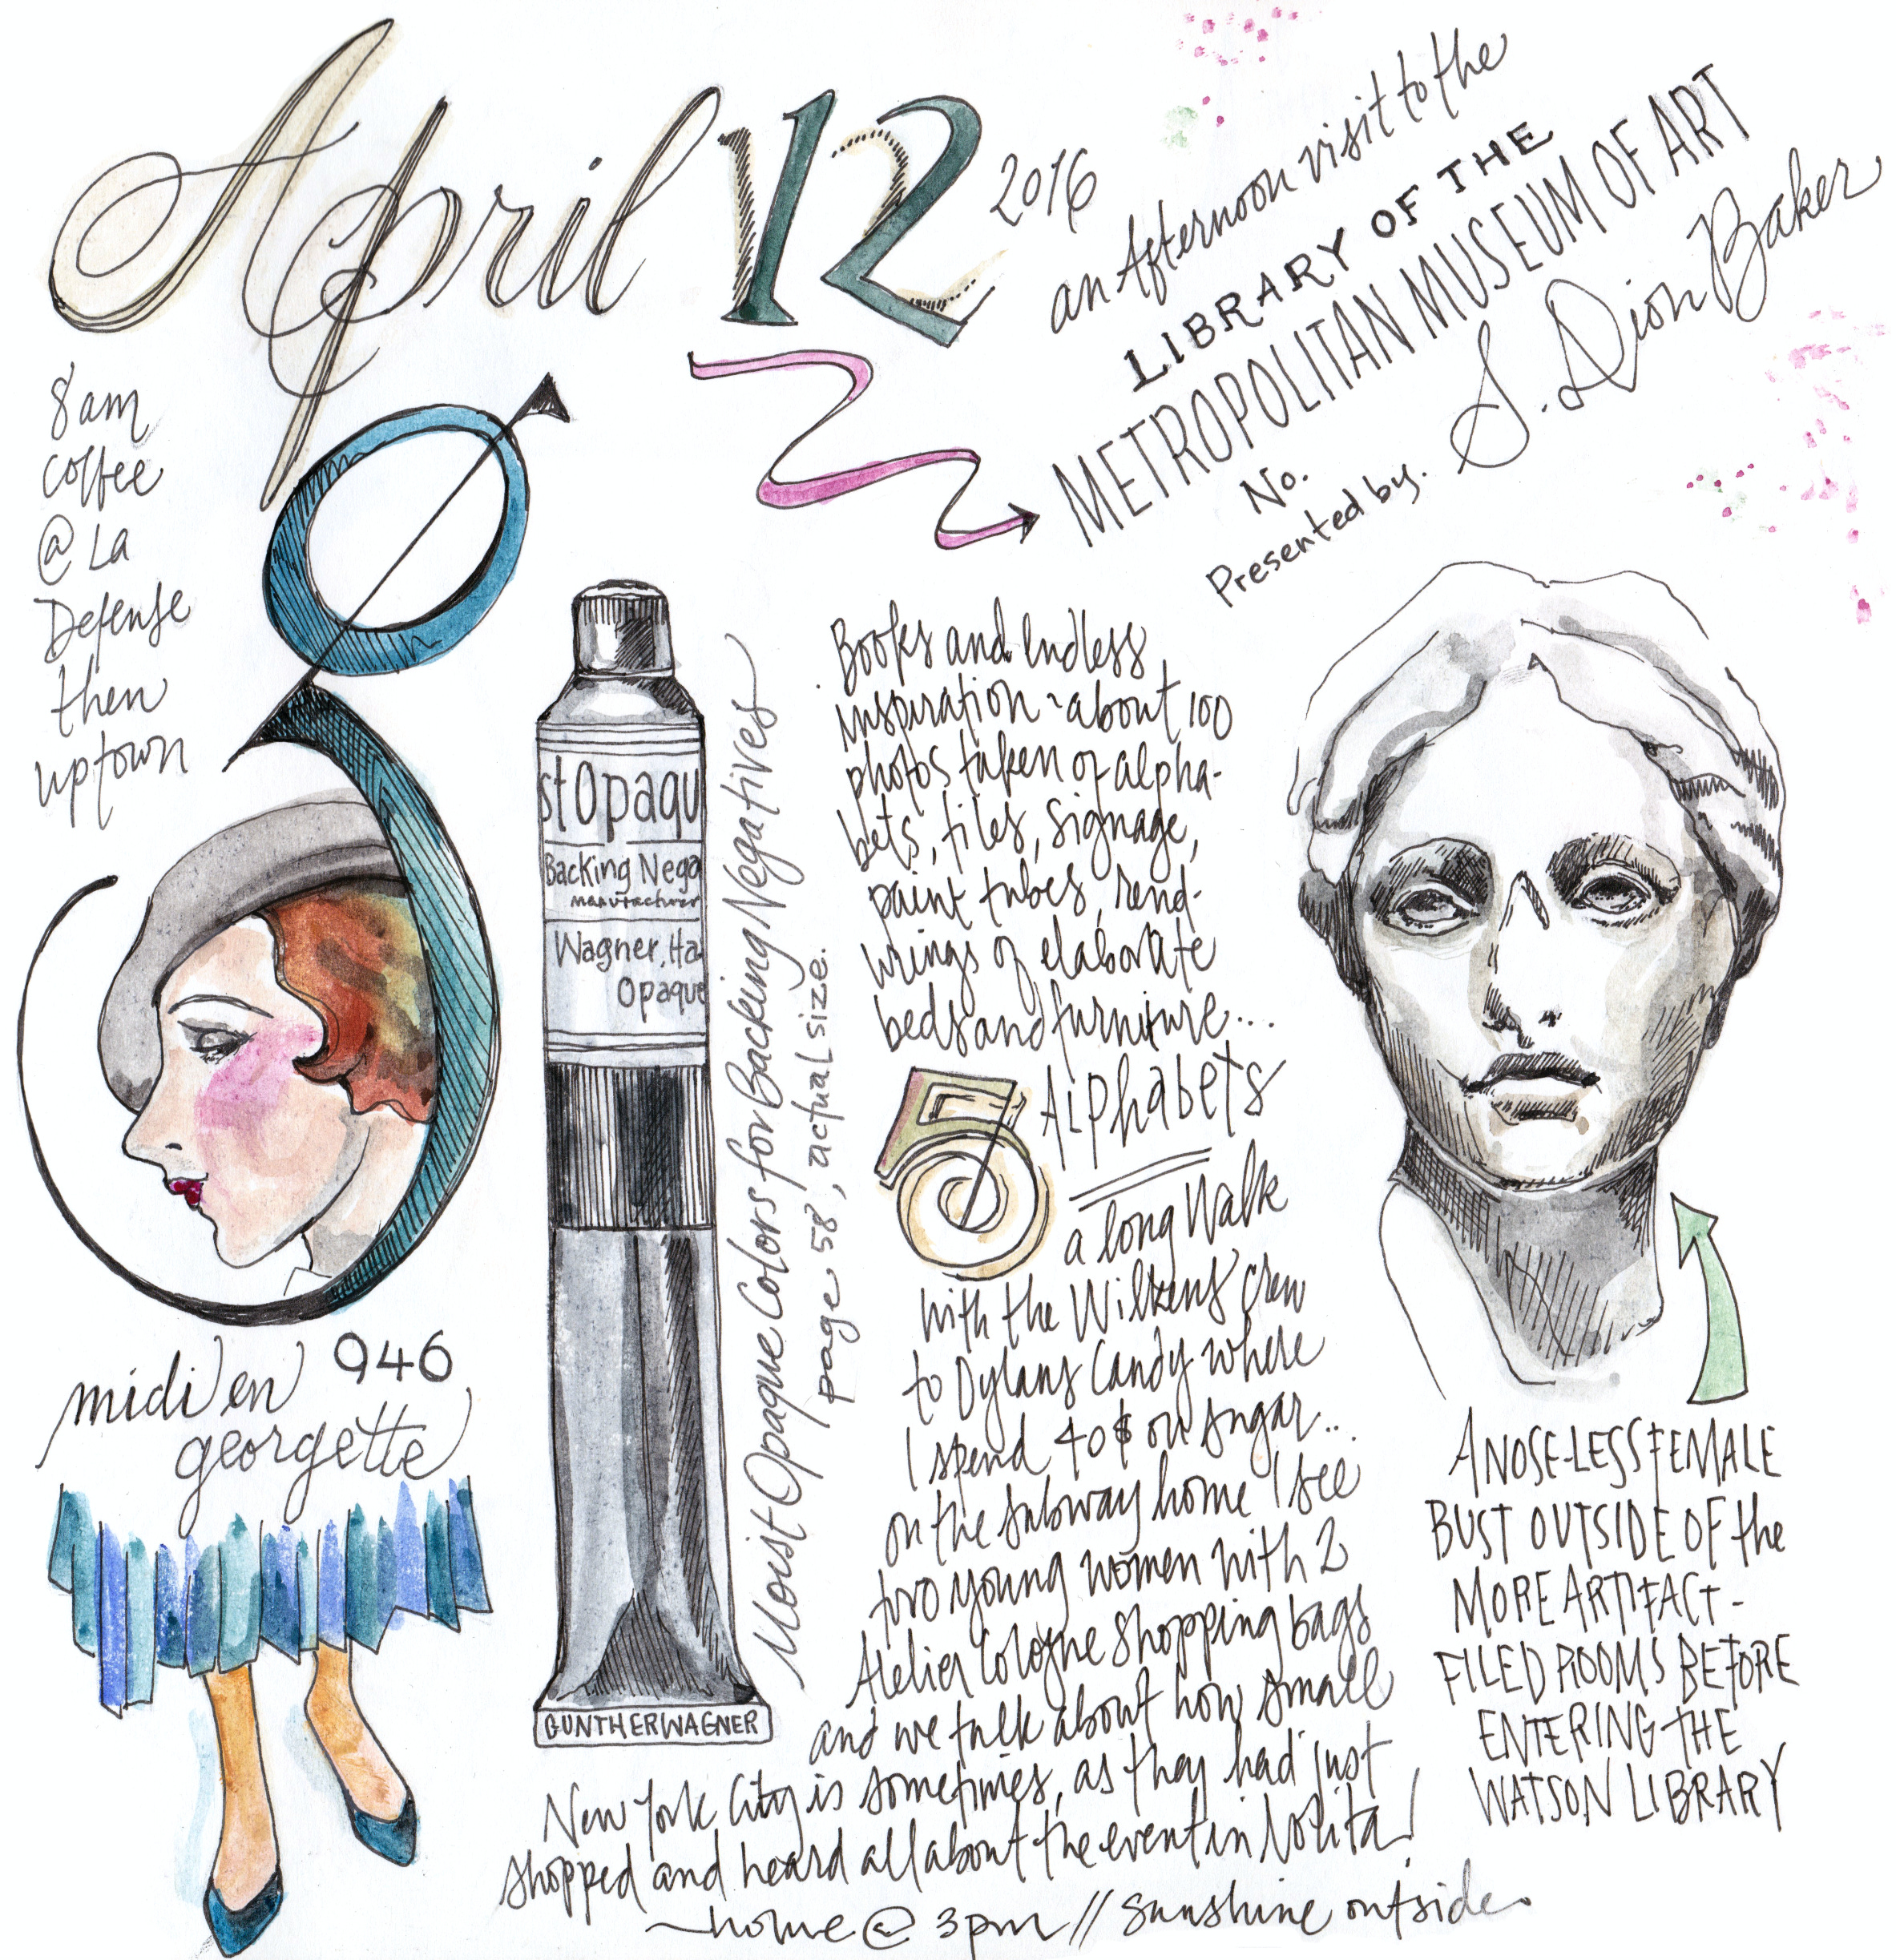 April 12
2016
an Afternoon visit to the
LIBRARY OF THE
METROPOLITAN MUSEUM OF ART
No.
Presented by. S. Dion Baker
8am
coffee
@ La
Defense
then
uptown
midi en 946
georgette
stOpaqu
Backing Nega
Manufacturer
Wagner, Ha
Opaque
GUNTHERWAGNER
Moist Opaque Colors for Backing Negatives
page 58, actual size.
Books and endless
inspiration ~ about 100
photos taken of alpha-
bets, tiles, signage,
paint tubes, rend-
urings of elaborate
beds and furniture...
5 Alphabets
a long walk
with the Wilkens crew
to Dylans Candy where
I spend 40$ on sugar...
on the subway home I see
two young women with 2
Atelier Cologne shopping bags
and we talk about how small
New York City is sometimes, as they had just
shopped and heard all about the event in Nolita!
~home @ 3pm // sunshine outside
A NOSE-LESS FEMALE
BUST OUTSIDE OF the
MORE ARTIFACT-
FILED ROOMS BEFORE
ENTERING THE
WATSON LIBRARY